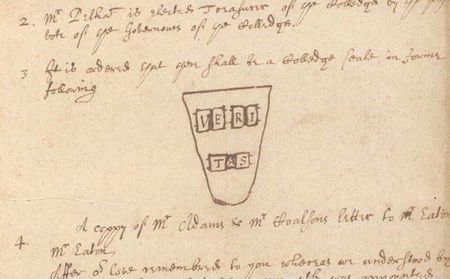 2. Mr Pelham is elected Treasurer of ye Colledge by the joynt
vote of ye Governours of ye Colledge.
3 It is ordered that there shall be a Colledge seale in forme
following
VE RI
TAS
4. A coppy of Mr Adams & Mr Coalsons letter to Mr Eaton
Mr Eaton,
After or love remembred to you whereas we understood by